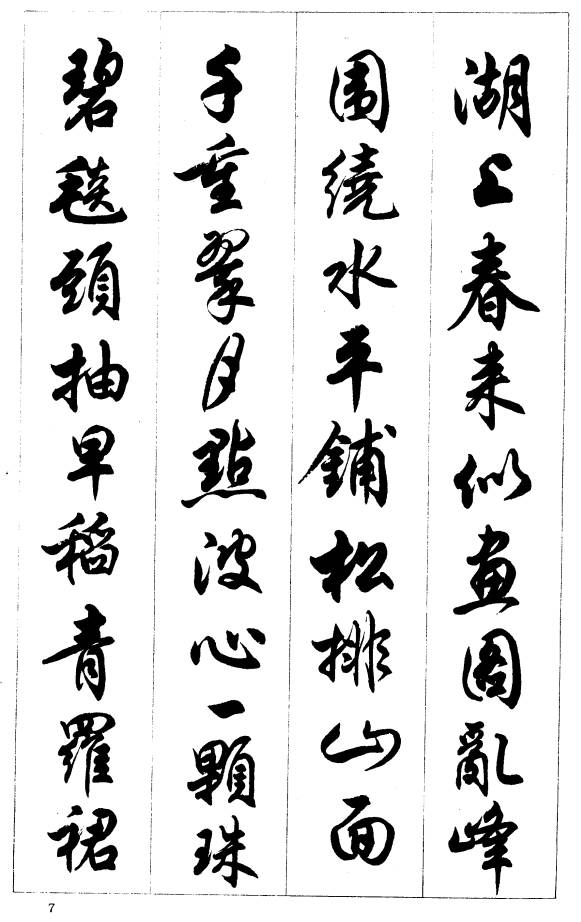 湖上春来似畫圖亂峰
围繞水平鋪松排山面
千重翠月點波心一顆珠
碧毯頭抽早稻青羅裙
7